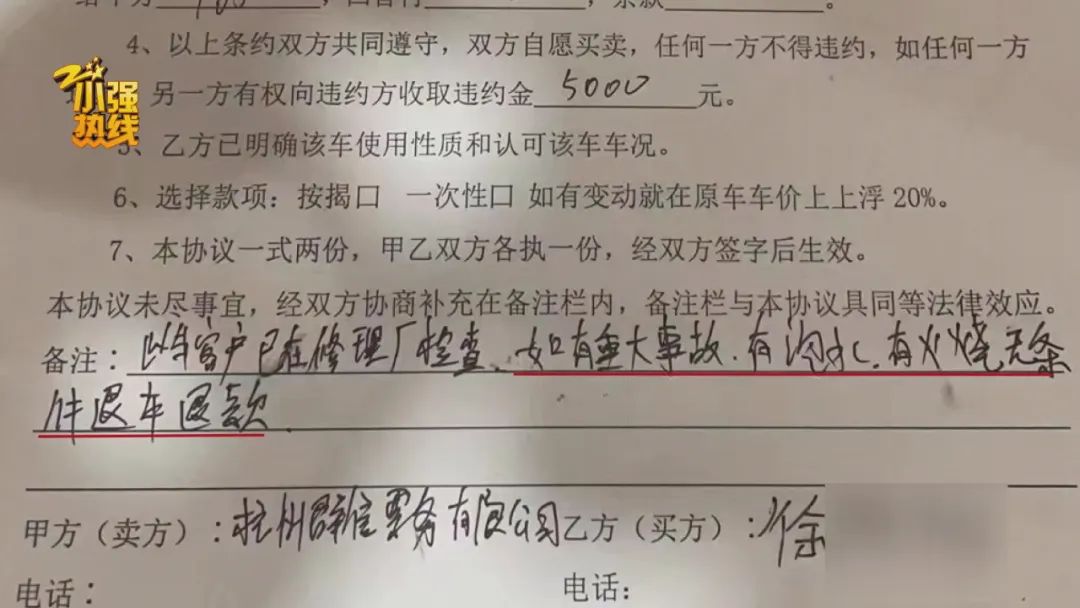 4、以上条约双方共同遵守，双方自愿买卖，任何一方不得违约，如任何一方
小强热线
另一方有权向违约方收取违约金5000元。
5、乙方已明确该车使用性质和认可该车车况。
6、选择款项：按揭口 一次性口 如有变动就在原车车价上上浮 20%。
7、本协议一式两份，甲乙双方各执一份，经双方签字后生效。
本协议未尽事宜，经双方协商补充在备注栏内，备注栏与本协议具同等法律效应。
备注：此车客户已在修理厂检查、如有重大事故.有泡水.有火烧无条
件退车退款.
甲方（卖方）：杭州 有限公司 乙方（买方）：徐
电话： 电话：